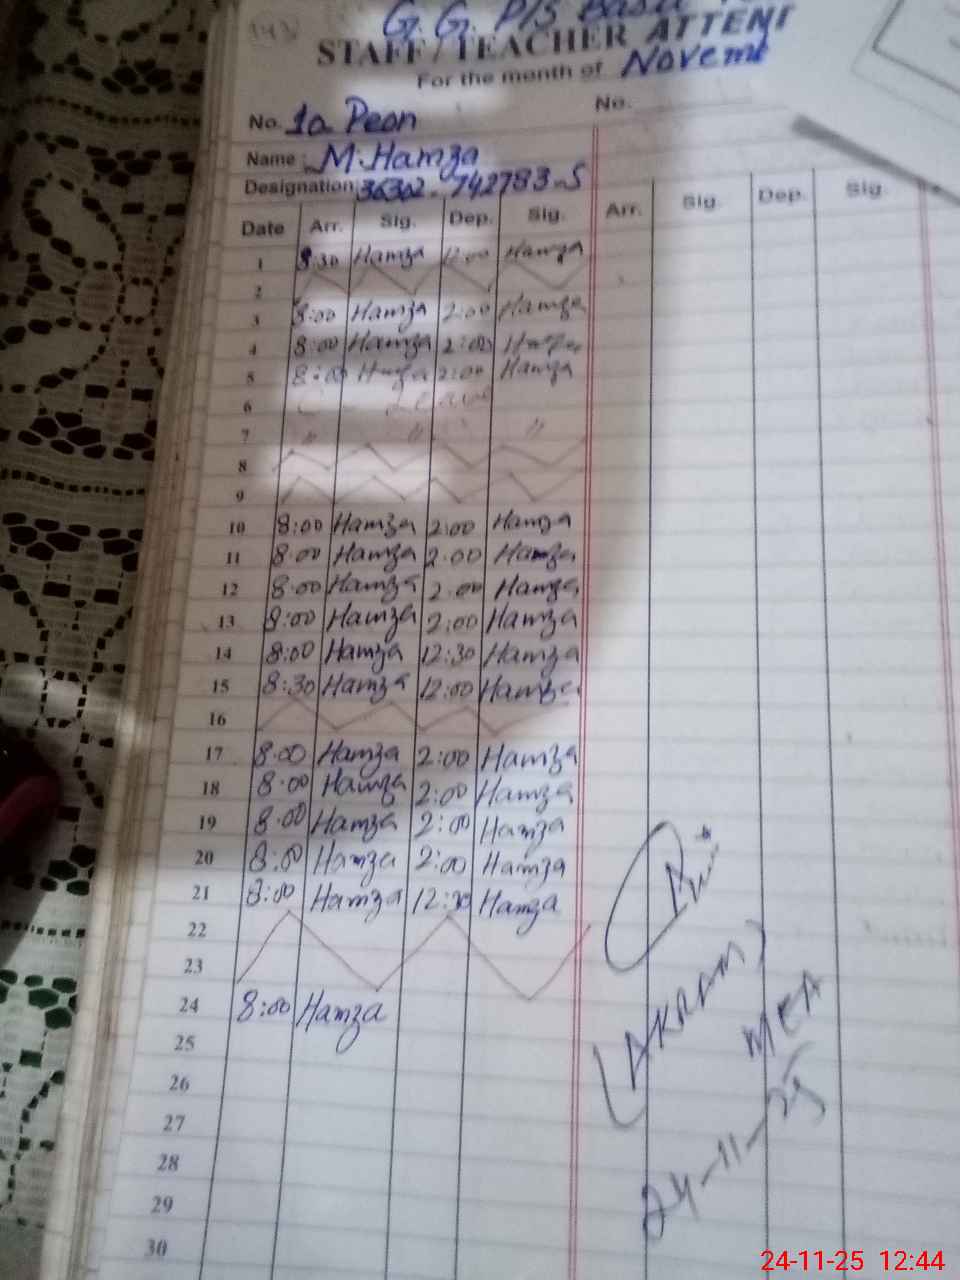 G. G. P/S Basti
STAFF / TEACHER ATTEN
For the month of Novem
No. 1a Peon No.
Name : M. Hamza
Designation: 36302-742783-5
Date Arr. Sig. Dep. Sig. Arr. Sig. Dep. Sig.
1 8:30 Hamza 12:00 Hamza
2
3 8:00 Hamza 2:00 Hamza
4 8:00 Hamza 2:00 Hamza
5 8:00 Hamza 2:00 Hamza
6 Leave
7 " " "
8
9
10 8:00 Hamza 2:00 Hamza
11 8:00 Hamza 2:00 Hamza
12 8:00 Hamza 2:00 Hamza
13 8:00 Hamza 2:00 Hamza
14 8:00 Hamza 12:30 Hamza
15 8:30 Hamza 12:00 Hamza
16
17 8:00 Hamza 2:00 Hamza
18 8:00 Hamza 2:00 Hamza
19 8:00 Hamza 2:00 Hamza
20 8:00 Hamza 2:00 Hamza
21 8:00 Hamza 12:30 Hamza
22
23
24 8:00 Hamza
25
26
27
28
29
30
(AKRAM)
MEA
24-11-25
24-11-25 12:44